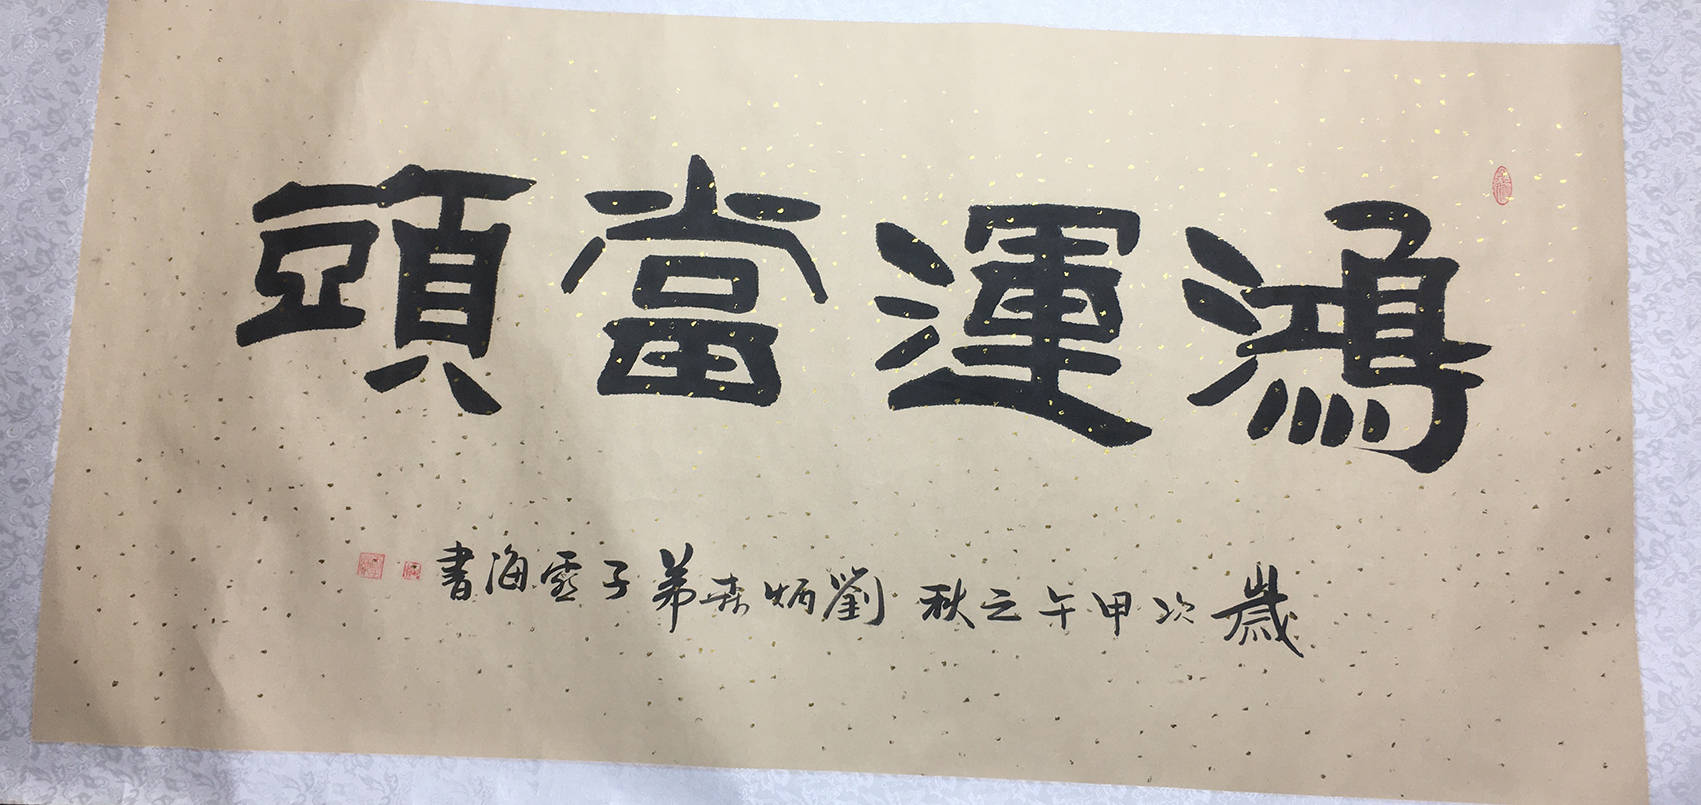 鴻運當頭
歲次甲午之秋劉炳森弟子雲海書